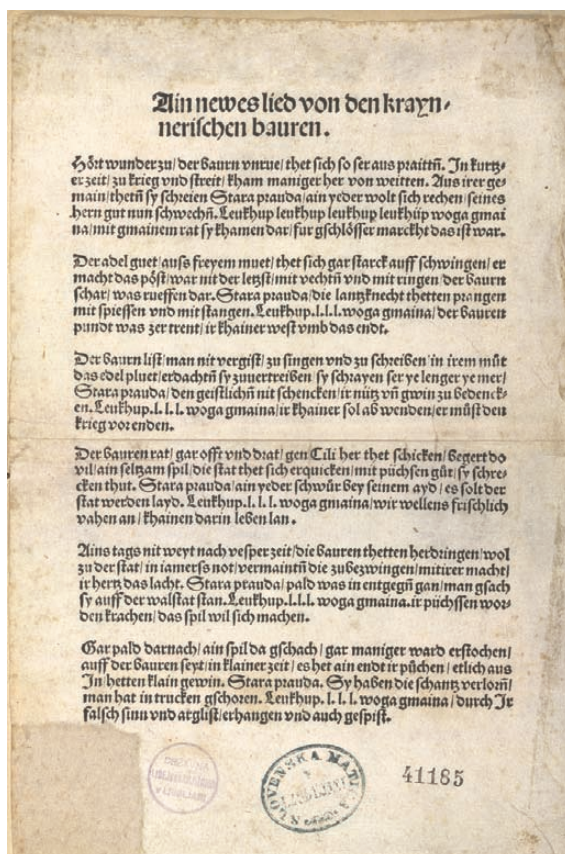 Ain newes lied von den krayn-
nerischen bauren.
Hört wunder zu/ der baurn vnrue/ thet sich so ser aus praittñ. In kurtz-
er zeit/ zu krieg vnd streit/ kham maniger her von weitten. Aus irer ge-
main/ thetñ sy schreien Stara prauda/ ain yeder wolt sich rechen/ seines
hern gut nun schwechñ. Leukhup leukhup leukhup leukhup woga gmai
na/ mit gmainem rat sy khamen dar/ fur gschlösser marckht das ist war.
Der adel guet/ auss freyem muet/ thet sich gar starck auff schwingen/ er
macht das pöst/ war nit der letzst/ mit vechtñ vnd mit ringen/ der baurn
schar/ was rueffen dar. Stara prauda/ die lantzknecht thetten prangen
mit spiessen vnd mit stangen. Leukhup.l.l.l. woga gmaina/ der bauren
pundt was zer trent/ ir khainer west vmb das endt.
Der baurn list/ man nit vergist/ zu singen vnd zu schreiben/ in irem müt
das edel pluet/ erdachtñ sy zuuertreiben sy schrayen ser ye lenger ye mer/
Stara prauda/ den geistlichñ nit schencken/ ir nütz vñ gwin zu bedenck-
en. Leukhup.l.l.l. woga gmaina/ ir khainer sol ab wenden/ er müst den
krieg vor enden.
Der bauren rat/ gar offt vnd drat/ gen Cili her thet schicken/ begert do
vil/ ain seltzam spil/ die stat thet sich erquicken/ mit püchsen güt/ sy schre-
cken thut. Stara prauda/ ain yeder schwür bey seinem ayd/ es solt der
stat werden layd. Leukhup.l.l.l. woga gmaina/ wir wellens frischlich
vahen an/ khainen darin leben lan.
Ains tags nit weyt nach vesper zeit/ die bauren thetten herdringen/ wol
zu der stat/ in iamerss not/ vermaintñ die zubezwingen/ mit irer macht/
ir hertz das lacht. Stara prauda/ pald was in entgegñ gan/ man gsach
sy auff der walstat stan. Leukhup.l.l.l. woga gmaina. ir püchssen wor-
den krachen/ das spil wil sich machen.
Gar pald darnach/ ain spil da gschach/ gar maniger ward erstochen/
auff der bauren seyt/ in klainer zeit/ es het ain endt ir püchen/ etlich aus
In/ hetten klain gewin. Stara prauda. Sy haben die schantz verlorñ/
man hat in trucken gschoren. Leukhup.l.l.l. woga gmaina/ durch Ir
falsch sinn vnd arglist/ erhangen vnd auch gespist.
SLOVENSKA MATICA
V
LJUBLJANI
41185